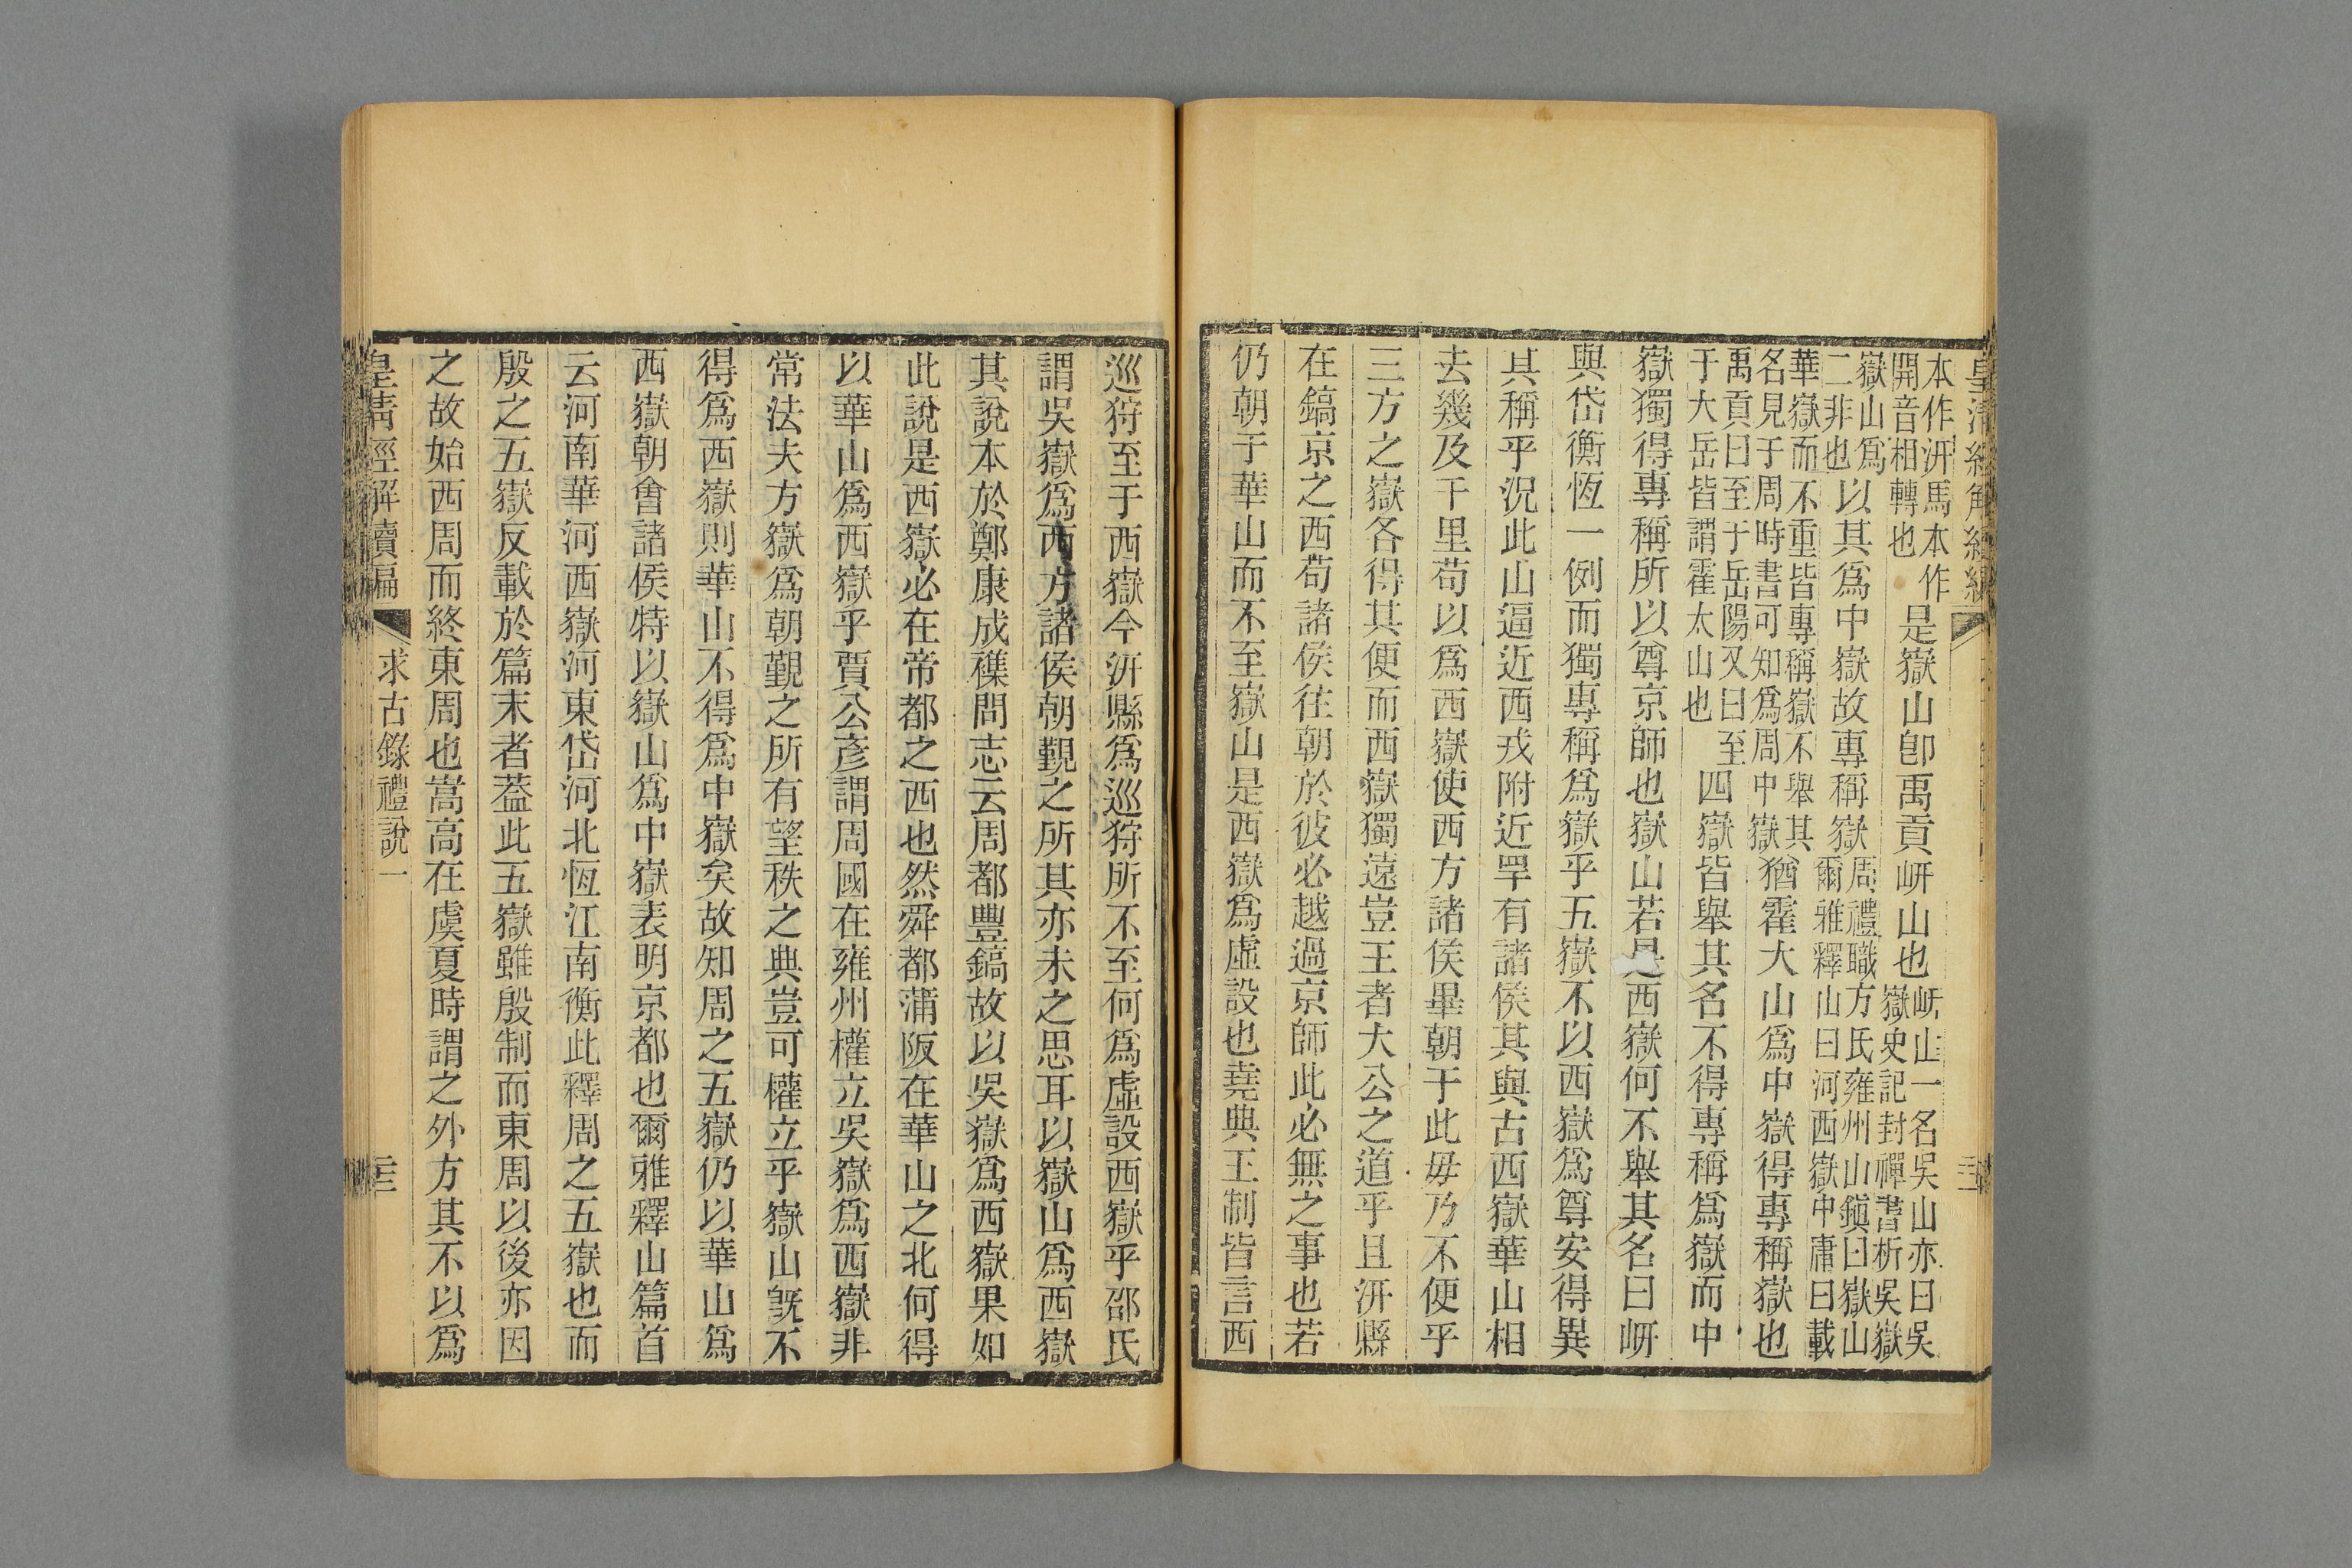 本作汧馬本作
開音相轉也
是嶽山卽禹貢岍山也
岍山一名吳山亦曰吳
嶽史記封禪書析吳嶽
嶽山爲
二非也
以其爲中嶽故專稱嶽
周禮職方氏雍州山鎭曰嶽山
爾雅釋山曰河西嶽中庸曰載
華嶽而不重皆專稱嶽不舉其
名見于周時書可知爲周中嶽
猶霍大山爲中嶽得專稱嶽也
禹貢曰至于岳陽又曰至
于大岳皆謂霍太山也
四嶽皆舉其名不得專稱爲嶽而中
嶽獨得專稱所以尊京師也嶽山若是西嶽何不舉其名曰岍
與岱衡恆一例而獨專稱爲嶽乎五嶽不以西嶽爲尊安得異
其稱乎況此山逼近西戎附近罕有諸侯其與古西嶽華山相
去幾及千里苟以爲西嶽使西方諸侯畢朝于此毋乃不便乎
三方之嶽各得其便而西嶽獨遠豈王者大公之道乎且汧縣
在鎬京之西苟諸侯往朝於彼必越過京師此必無之事也若
仍朝于華山而不至嶽山是西嶽爲虛設也堯典王制皆言西
巡狩至于西嶽今汧縣爲巡狩所不至何爲虛設西嶽乎邵氏
謂吳嶽爲西方諸侯朝覲之所其亦未之思耳以嶽山爲西嶽
其說本於鄭康成襍問志云周都豐鎬故以吳嶽爲西嶽果如
此說是西嶽必在帝都之西也然舜都蒲阪在華山之北何得
以華山爲西嶽乎賈公彥謂周國在雍州權立吳嶽爲西嶽非
常法夫方嶽爲朝覲之所有望秩之典豈可權立乎嶽山旣不
得爲西嶽則華山不得爲中嶽矣故知周之五嶽仍以華山爲
西嶽朝會諸侯特以嶽山爲中嶽表明京都也爾雅釋山篇首
云河南華河西嶽河東岱河北恆江南衡此釋周之五嶽也而
殷之五嶽反載於篇末者蓋此五嶽雖殷制而東周以後亦因
之故始西周而終東周也嵩高在虞夏時謂之外方其不以爲
皇清經解續編
求古錄禮說一